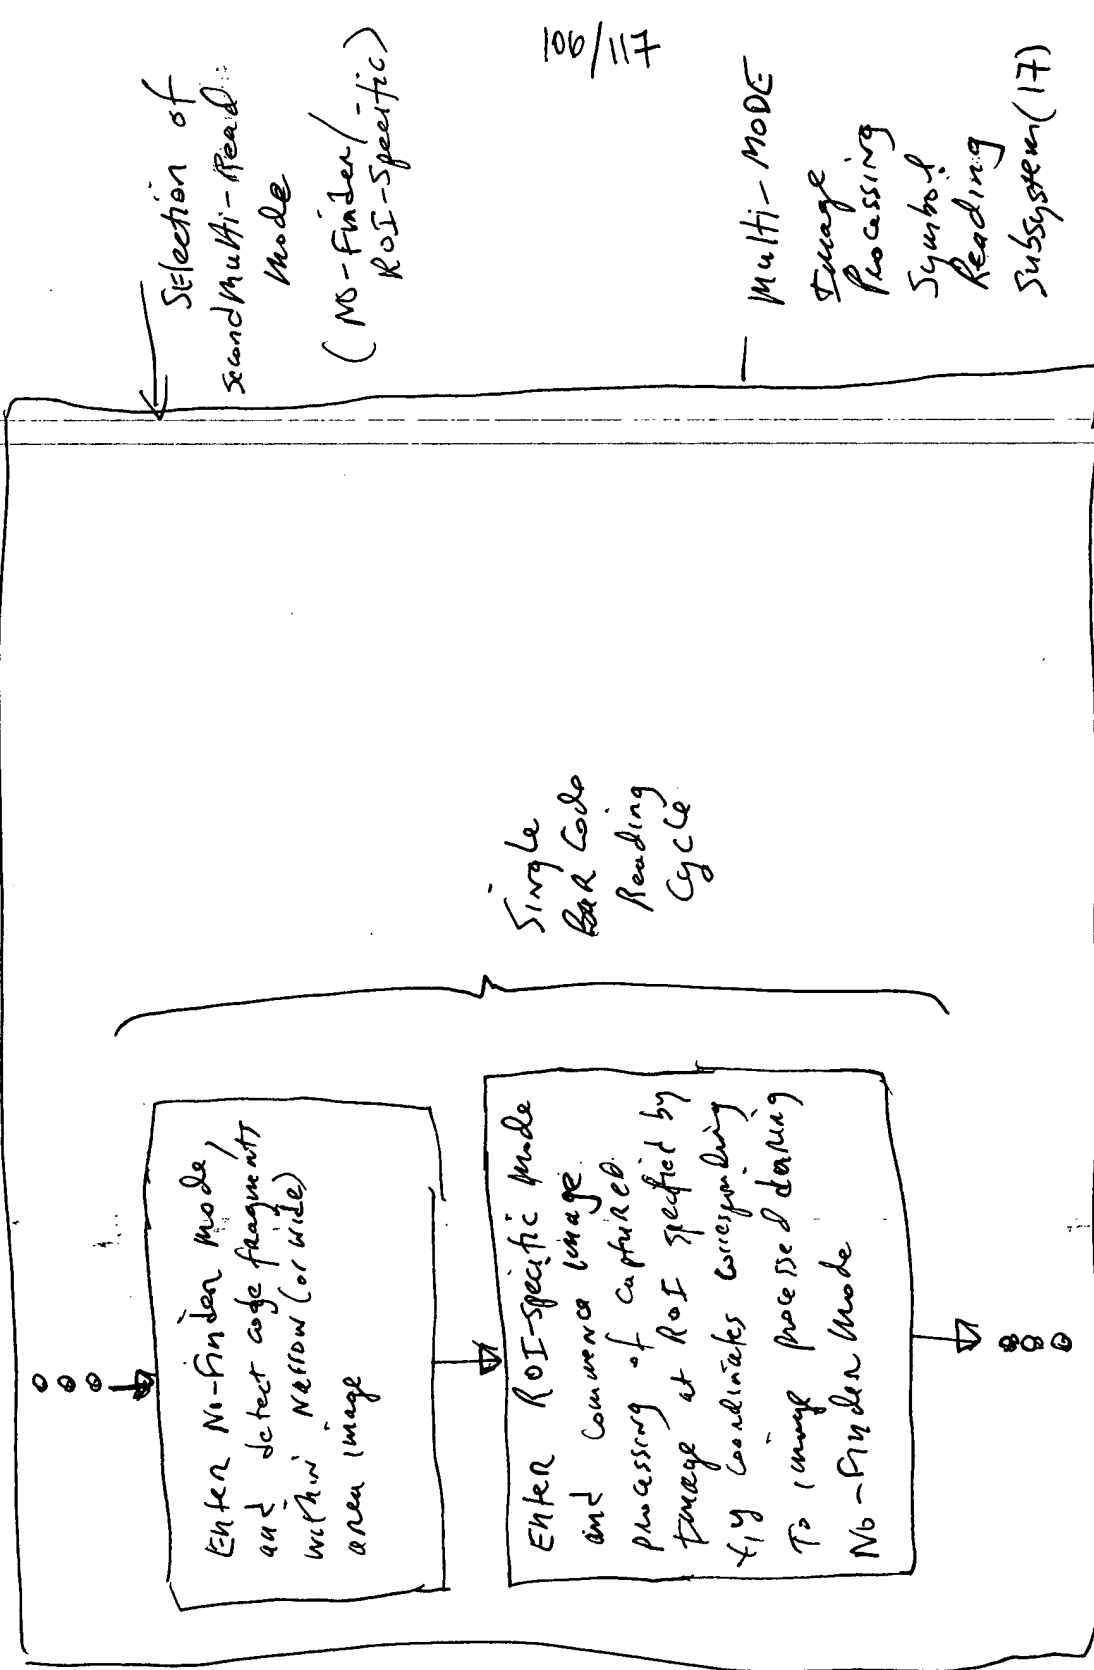 106/117
Selection of
Second Multi-Read
Mode
(No-Finder/
ROI-Specific)
Multi-MODE
Image
Processing
Symbol
Reading
Subsystem (17)
Enter No-Finder Mode,
and detect code fragments
within Narrow (or wide)
area image
Single
Bar Code
Reading
Cycle
Enter ROI-specific Mode
and commence image
processing of captured
Image at ROI specified by
x,y coordinates corresponding
To image processed during
No-Finder Mode